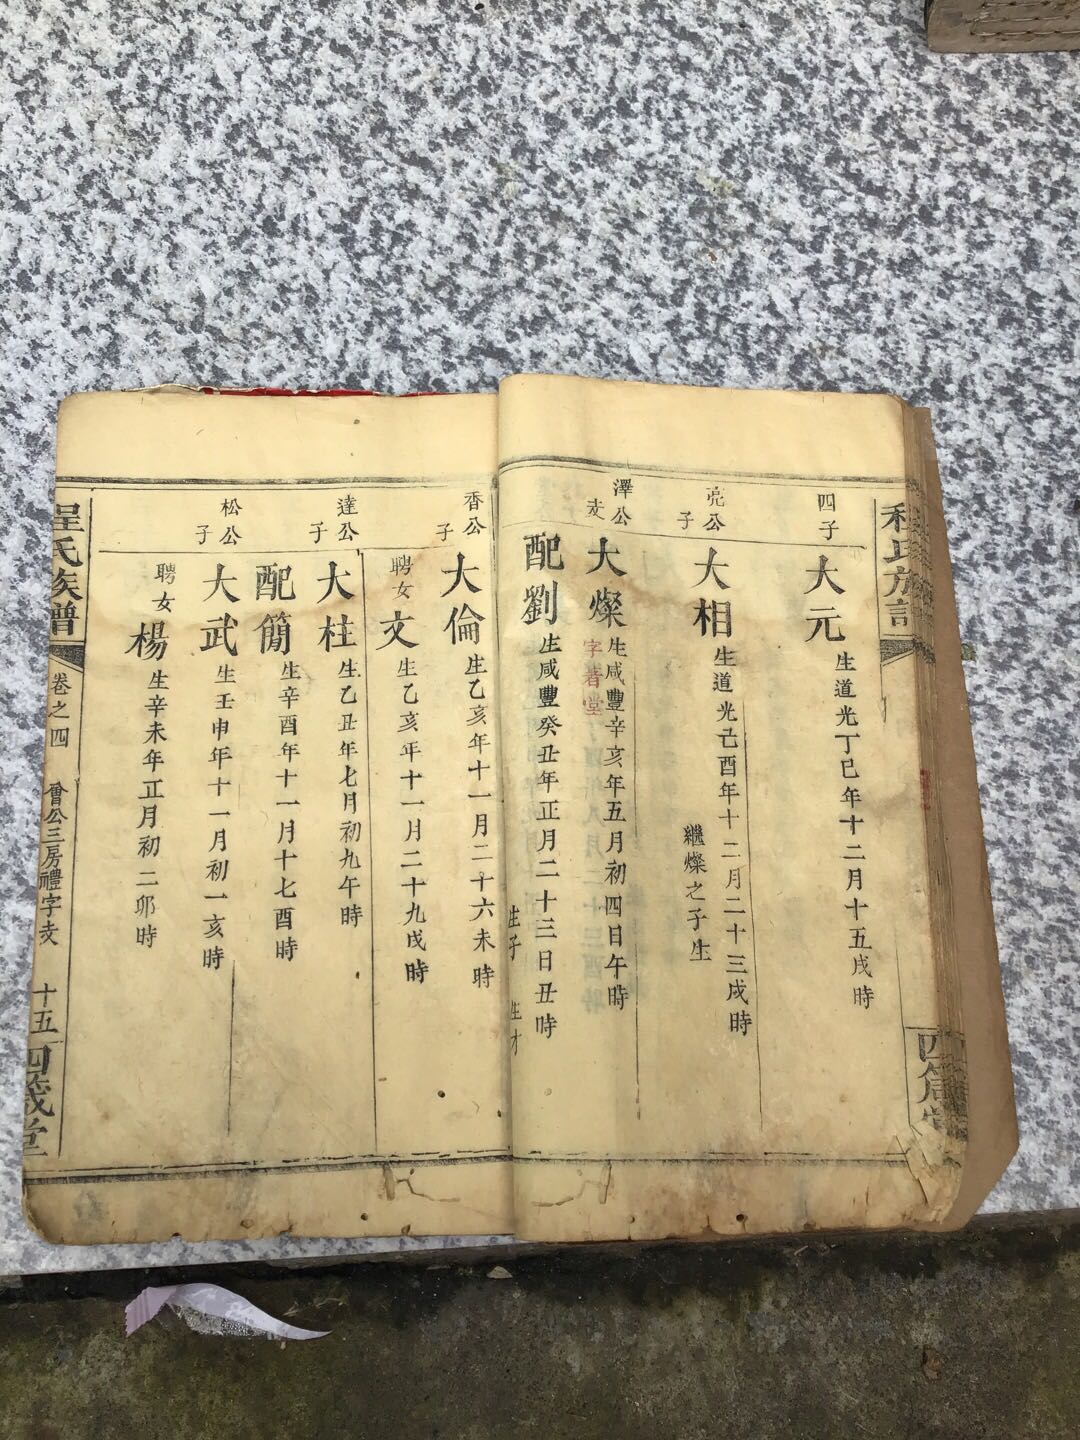 程氏族譜
四箴堂
四子
大元
生道光丁巳年十二月十五戌時
亮公子
大相
生道光己酉年十二月二十三戌時
繼燦之子生
澤公
大燦
字著堂
生咸豐辛亥年五月初四日午時
配劉
生咸豐癸丑年正月二十三日丑時
生子
生才
香公子
大倫
生乙亥年十一月二十六未時
聘女文
生乙亥年十一月二十九戌時
達公子
大柱
生乙丑年七月初九午時
配簡
生辛酉年十一月十七酉時
松公子
大武
生壬申年十一月初一亥時
聘女楊
生辛未年正月初二卯時
程氏族譜
卷之四
會公三房禮字支
十五
四箴堂